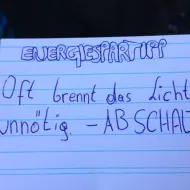 ENERGIESPARTIPP
Oft brennt das Licht
unnötig. - ABSCHALT